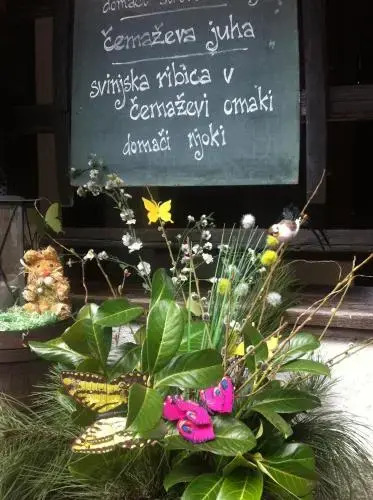 domači
čemaževa juha
svinjska ribica v
čemaževi omaki
domači njoki